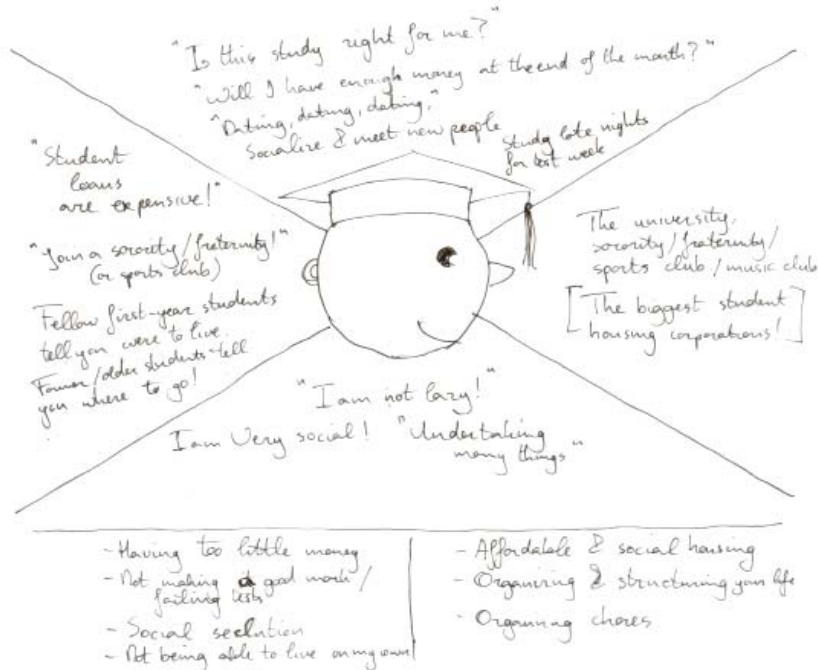 "Is this study right for me?"
"Will I have enough money at the end of the month?"
"Dating, dating, dating."
Socialize & meet new people
Study late nights
for test week
"Student
loans
are expensive!"
"Join a sorority/fraternity!"
(or sports club)
Fellow first-year students
tell you were to live.
Former/older students tell
you where to go!
The university,
sorority/fraternity/
sports club/music club
[The biggest student
housing corporations!]
"I am not lazy!"
I am Very social!
"Undertaking
many things"
- Having too little money
- Not making a good mark/
failing tests
- Social seclution
- Not being able to live on my own
- Affordable & social housing
- Organizing & structuring your life
- Organizing chores